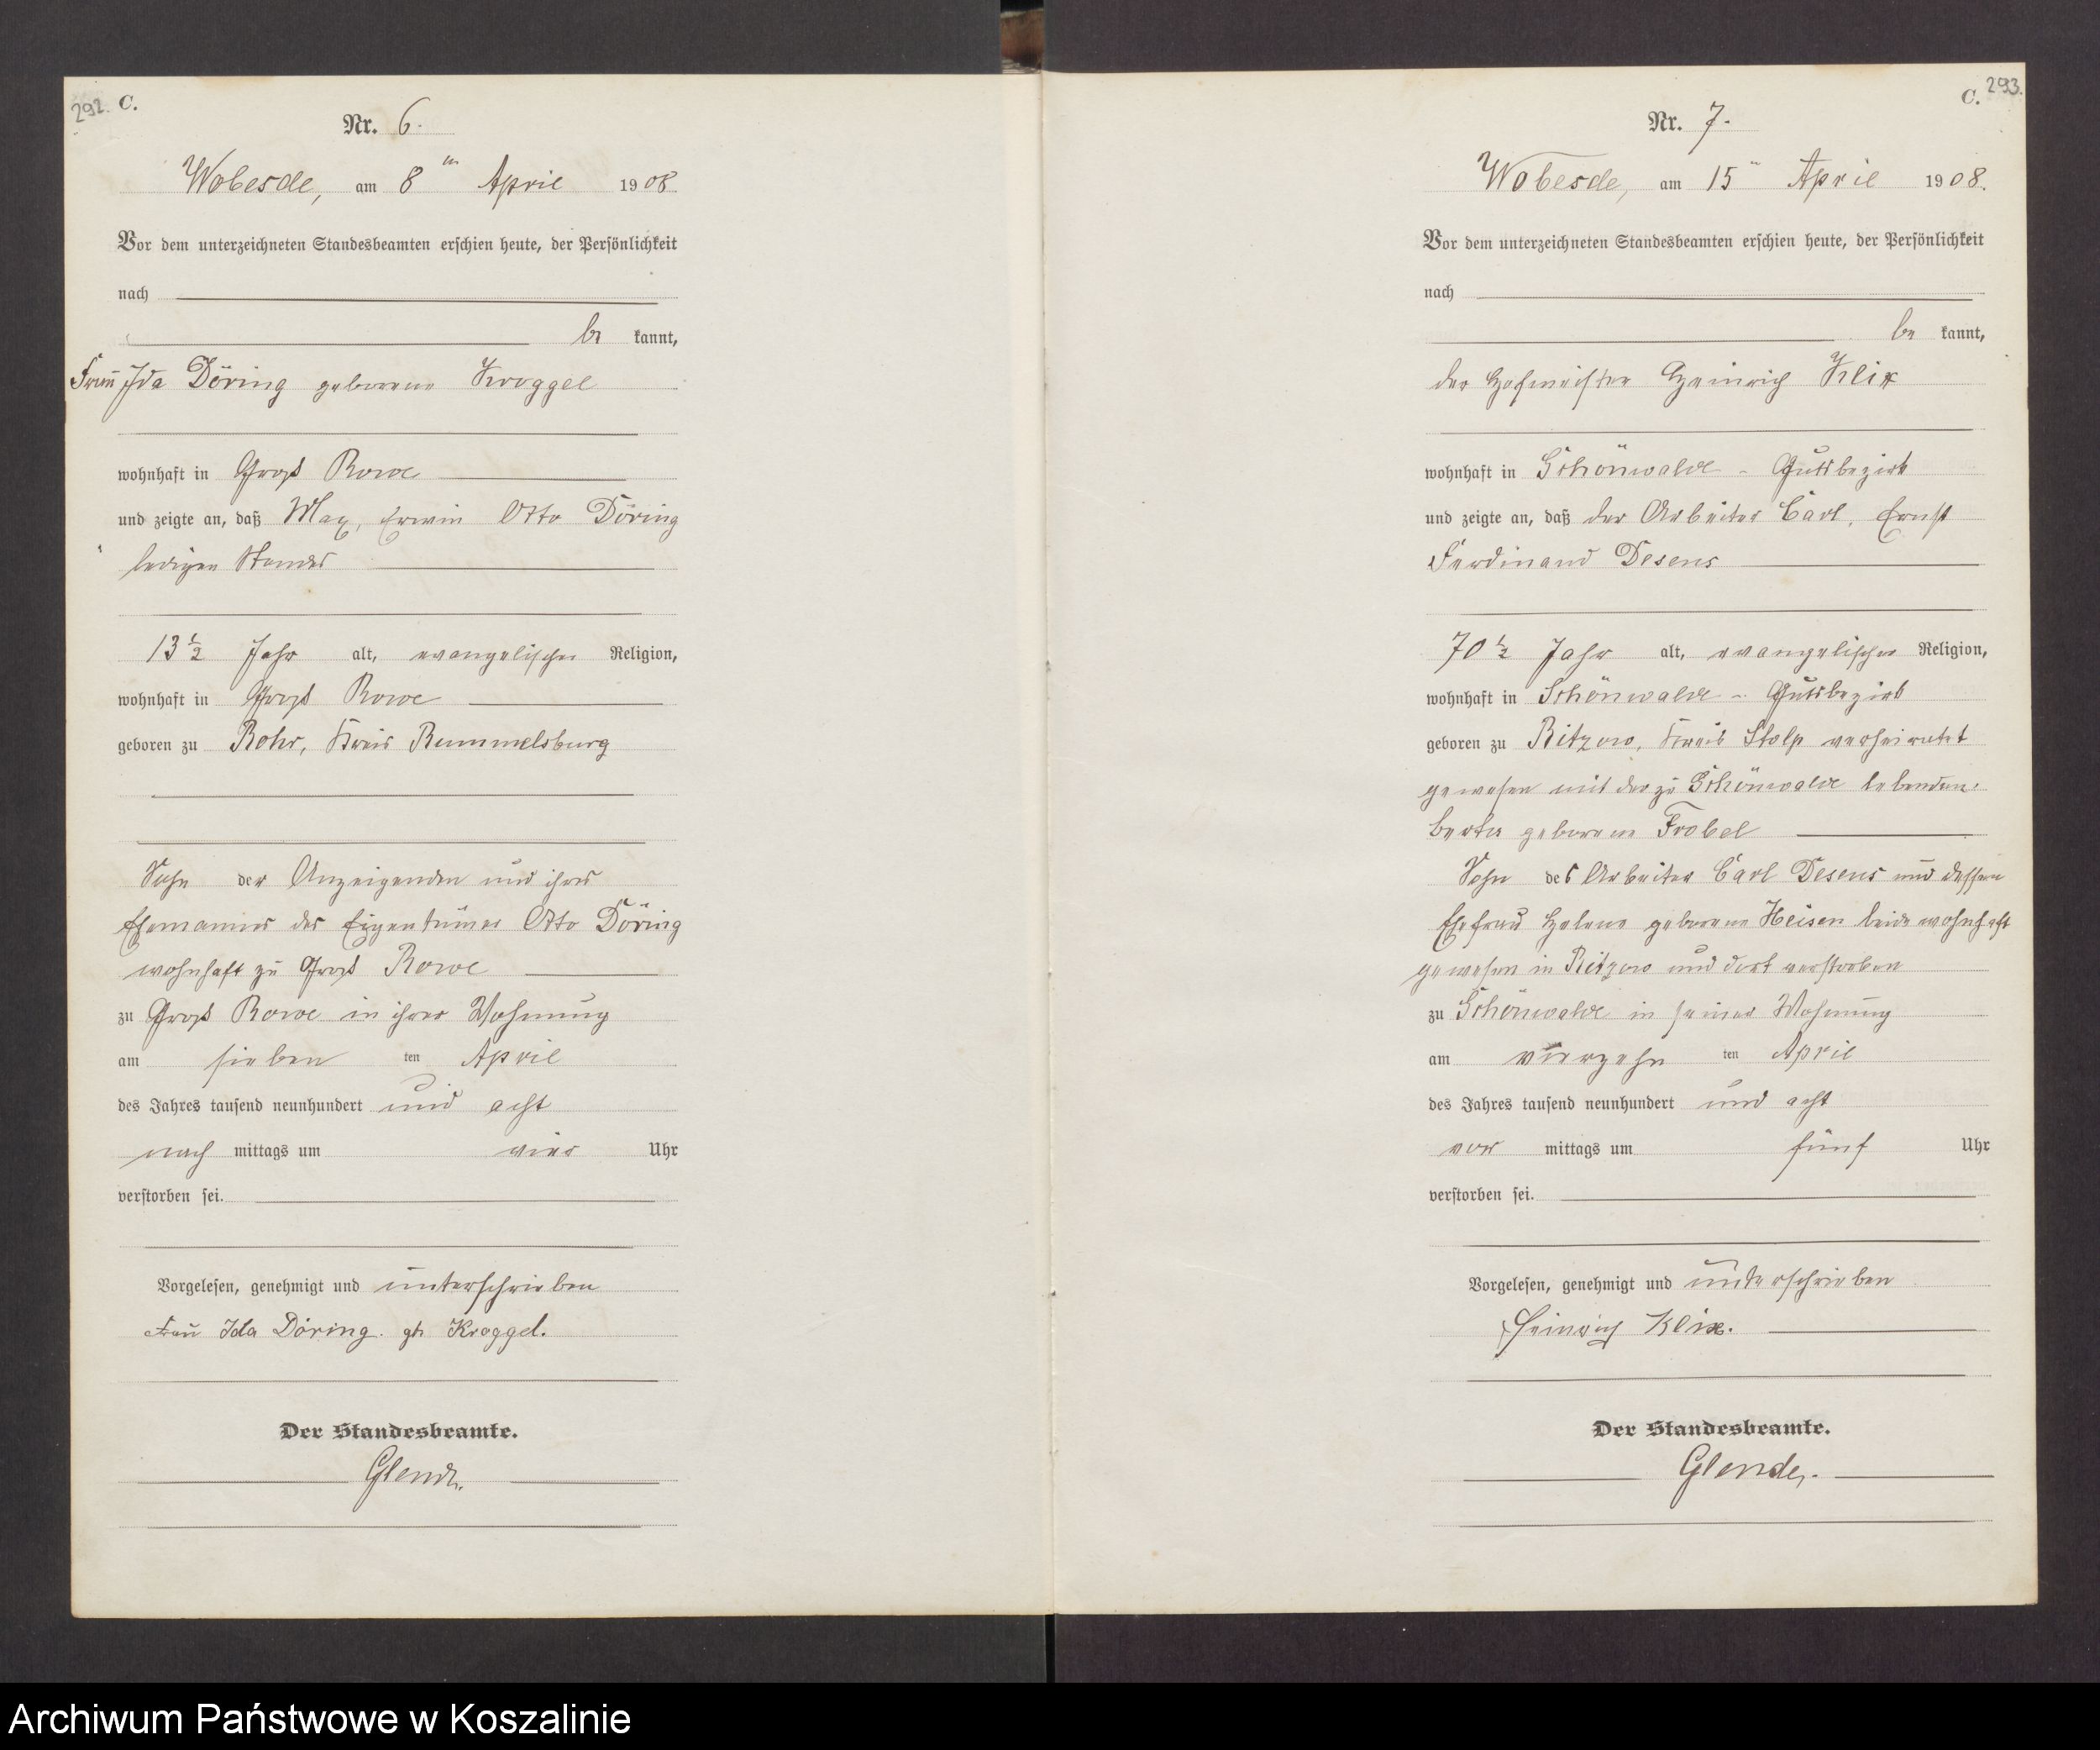 292. C.
Nr. 6.
Wobesde, am 8ten April 1908
Vor dem unterzeichneten Standesbeamten erschien heute, der Persönlichkeit
nach
be kannt,
Frau Ida Döring geborene Kroggel
wohnhaft in Groß Rowe
und zeigte an, daß Max, Erwin Otto Döring
ledigen Standes
13½ Jahr alt, evangelischer Religion,
wohnhaft in Groß Rowe
geboren zu Rohr, Kreis Rummelsburg
Sohn der Anzeigenden und ihres
Ehemannes des Eigentümer Otto Döring
wohnhaft zu Groß Rowe
zu Groß Rowe in ihrer Wohnung
am sieben ten April
des Jahres tausend neunhundert und acht
nach mittags um vier Uhr
verstorben sei.
Vorgelesen, genehmigt und unterschrieben
Frau Ida Döring. gb Kroggel.
Der Standesbeamte.
Glende.
C. 293.
Nr. 7.
Wobesde, am 15 April 1908.
Vor dem unterzeichneten Standesbeamten erschien heute, der Persönlichkeit
nach
be kannt,
der Hofmeister Heinrich Klix
wohnhaft in Schönwalde - Gutsbezirk
und zeigte an, daß der Arbeiter Carl, Ernst
Ferdinand Desens
70½ Jahr alt, evangelischer Religion,
wohnhaft in Schönwalde - Gutsbezirk
geboren zu Ritzow, Kreis Stolp verheiratet
gewesen mit der zu Schönwalde lebenden
Berta geborene Frobel
Sohn des Arbeiter Carl Desens und dessen
Ehefrau Helene geborene Heisen beide wohnhaft
gewesen in Ritzow und dort verstorben
zu Schönwalde in seiner Wohnung
am vierzehn ten April
des Jahres tausend neunhundert und acht
vor mittags um fünf Uhr
verstorben sei.
Vorgelesen, genehmigt und unterschrieben
Heinrich Klix.
Der Standesbeamte.
Glende.
Archiwum Państwowe w Koszalinie